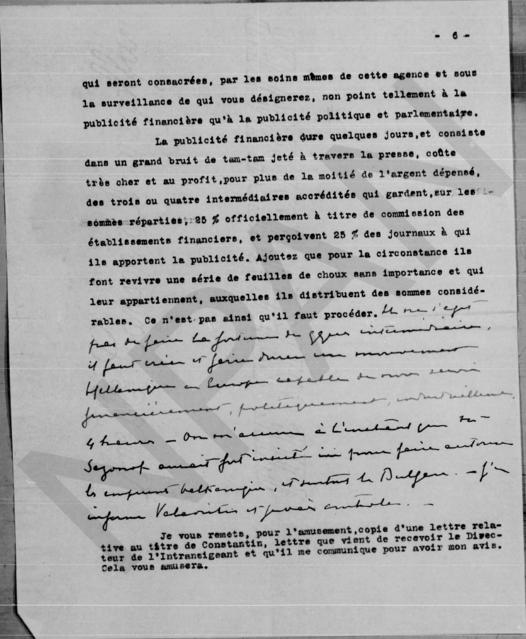 - 6 -
qui seront consacrées, par les soins mêmes de cette agence et sous
la surveillance de qui vous désignerez, non point tellement à la
publicité financière qu'à la publicité politique et parlementaire.
La publicité financière dure quelques jours,et consiste
dans un grand bruit de tam-tam jeté à travers la presse, coûte
très cher et au profit,pour plus de la moitié de l'argent dépensé,
des trois ou quatre intermédiaires accrédités qui gardent,sur les
sommes réparties, 25 % officiellement à titre de commission des
établissements financiers, et perçoivent 25 % des journaux à qui
ils apportent la publicité. Ajoutez que pour la circonstance ils
font revivre une série de feuilles de choux sans importance et qui
leur appartiennent, auxquelles ils distribuent des sommes considé-
rables. Ce n'est pas ainsi qu'il faut procéder. Il ne s'agit
pas de faire la fortune de intermédiaires,
il faut créer et faire durer un mouvement
Hellénique en Europe capable de nous servir
financièrement, politiquement, industriellement.
4 heures - On m'assure à l'instant que
Sazonof aurait fort insisté ici pour faire
les emprunts balkaniques, et surtout le Bulgare. - J'en
informe et
Je vous remets, pour l'amusement,copie d'une lettre rela-
tive au titre de Constantin, lettre que vient de recevoir le Direc-
teur de l'Intransigeant et qu'il me communique pour avoir mon avis.
Cela vous amusera.
NPAN